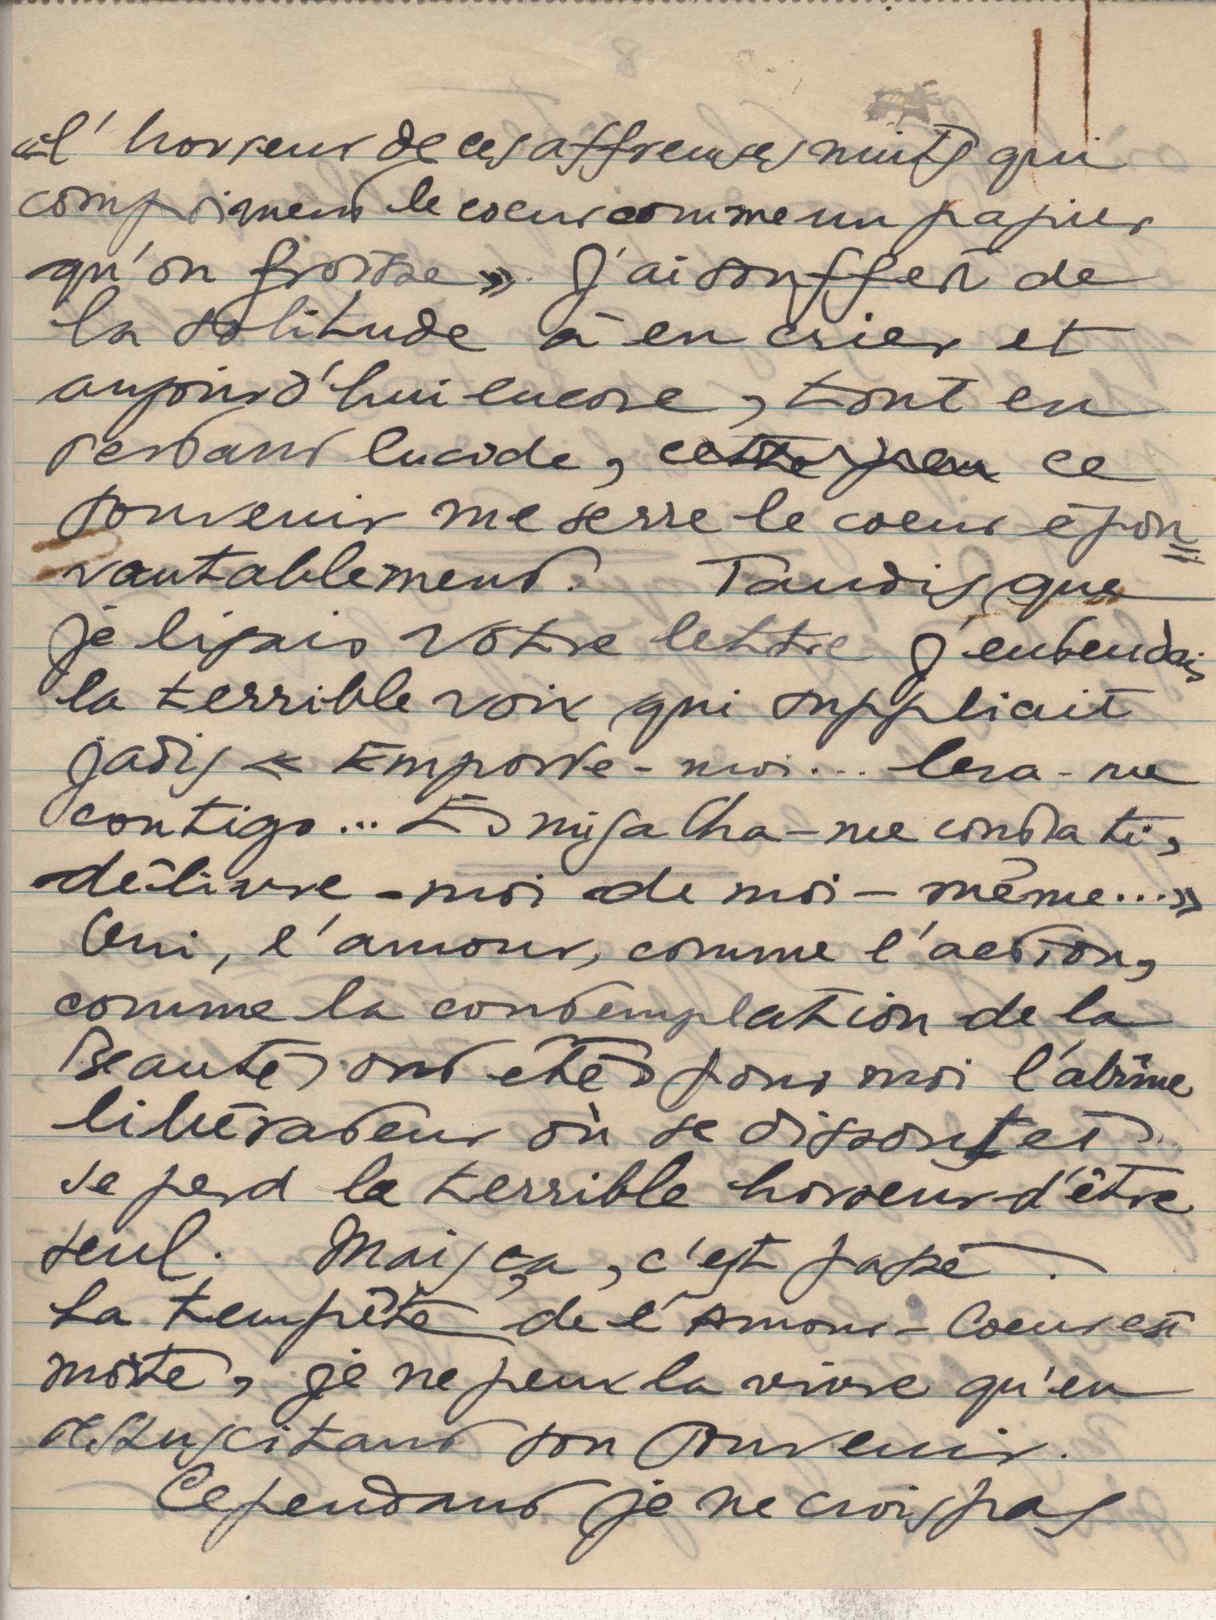 « l'horreur de ces affreuses nuits qui
compriment le coeur comme un papier
qu'on froisse ». J'ai souffert de
la solitude à en crier et
aujourd'hui encore, tout en
restant lucide, cette peur ce
souvenir me serre le coeur épou
vantablement. Tandis que
je lisais votre lettre j'entendais
la terrible voix qui suppliait
jadis « Emporte-moi... leva-me
contigo... Esmigalha-me contra ti,
délivre-moi de moi-même... »
Oui, l'amour, comme l'action,
comme la contemplation de la
Beauté, ont été pour moi l'abîme
libérateur où se dissout et
se perd la terrible horreur d'être
seul. Mais ça, c'est passé.
La tempête de l'Amour-Coeur est
morte, je ne peux la vivre qu'en
ressuscitant son souvenir.
Cependant je ne crois pas